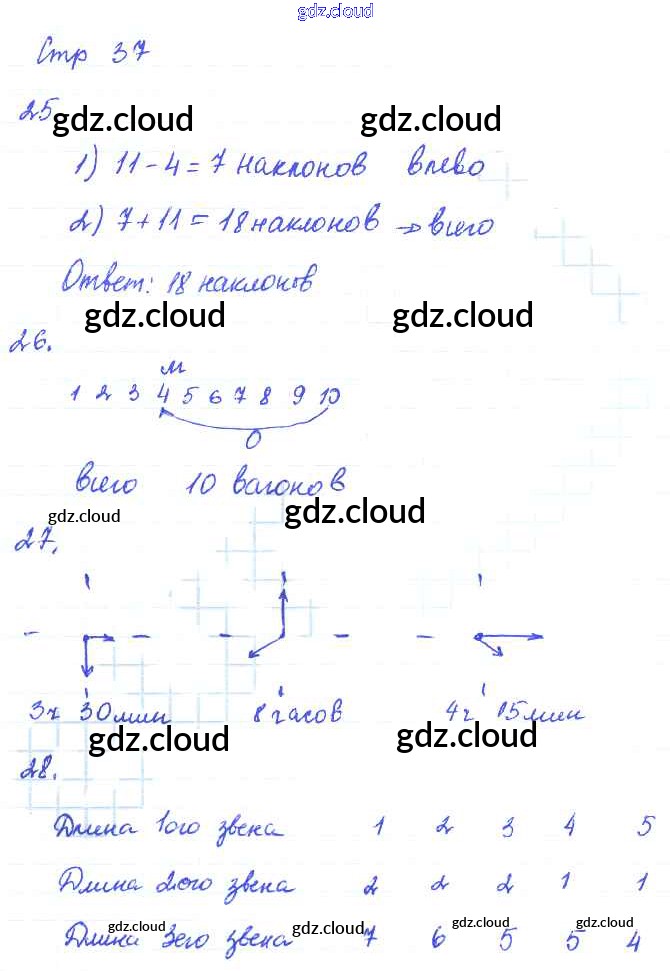 gdz.cloud
Стр 37
25
gdz.cloud gdz.cloud
1) 11 - 4 = 7 наклонов влево
2) 7 + 11 = 18 наклонов → всего
Ответ: 18 наклонов
gdz.cloud gdz.cloud
26.
м
1 2 3 4 5 6 7 8 9 10
О
всего 10 вагонов
gdz.cloud gdz.cloud
27.
3ч 30 мин 8 часов 4ч 15 мин
gdz.cloud gdz.cloud
28.
Длина 1ого звена 1 2 3 4 5
Длина 2ого звена 2 2 2 1 1
gdz.cloud gdz.cloud gdz.cloud gdz.cloud
Длина 3его звена 7 6 5 5 4